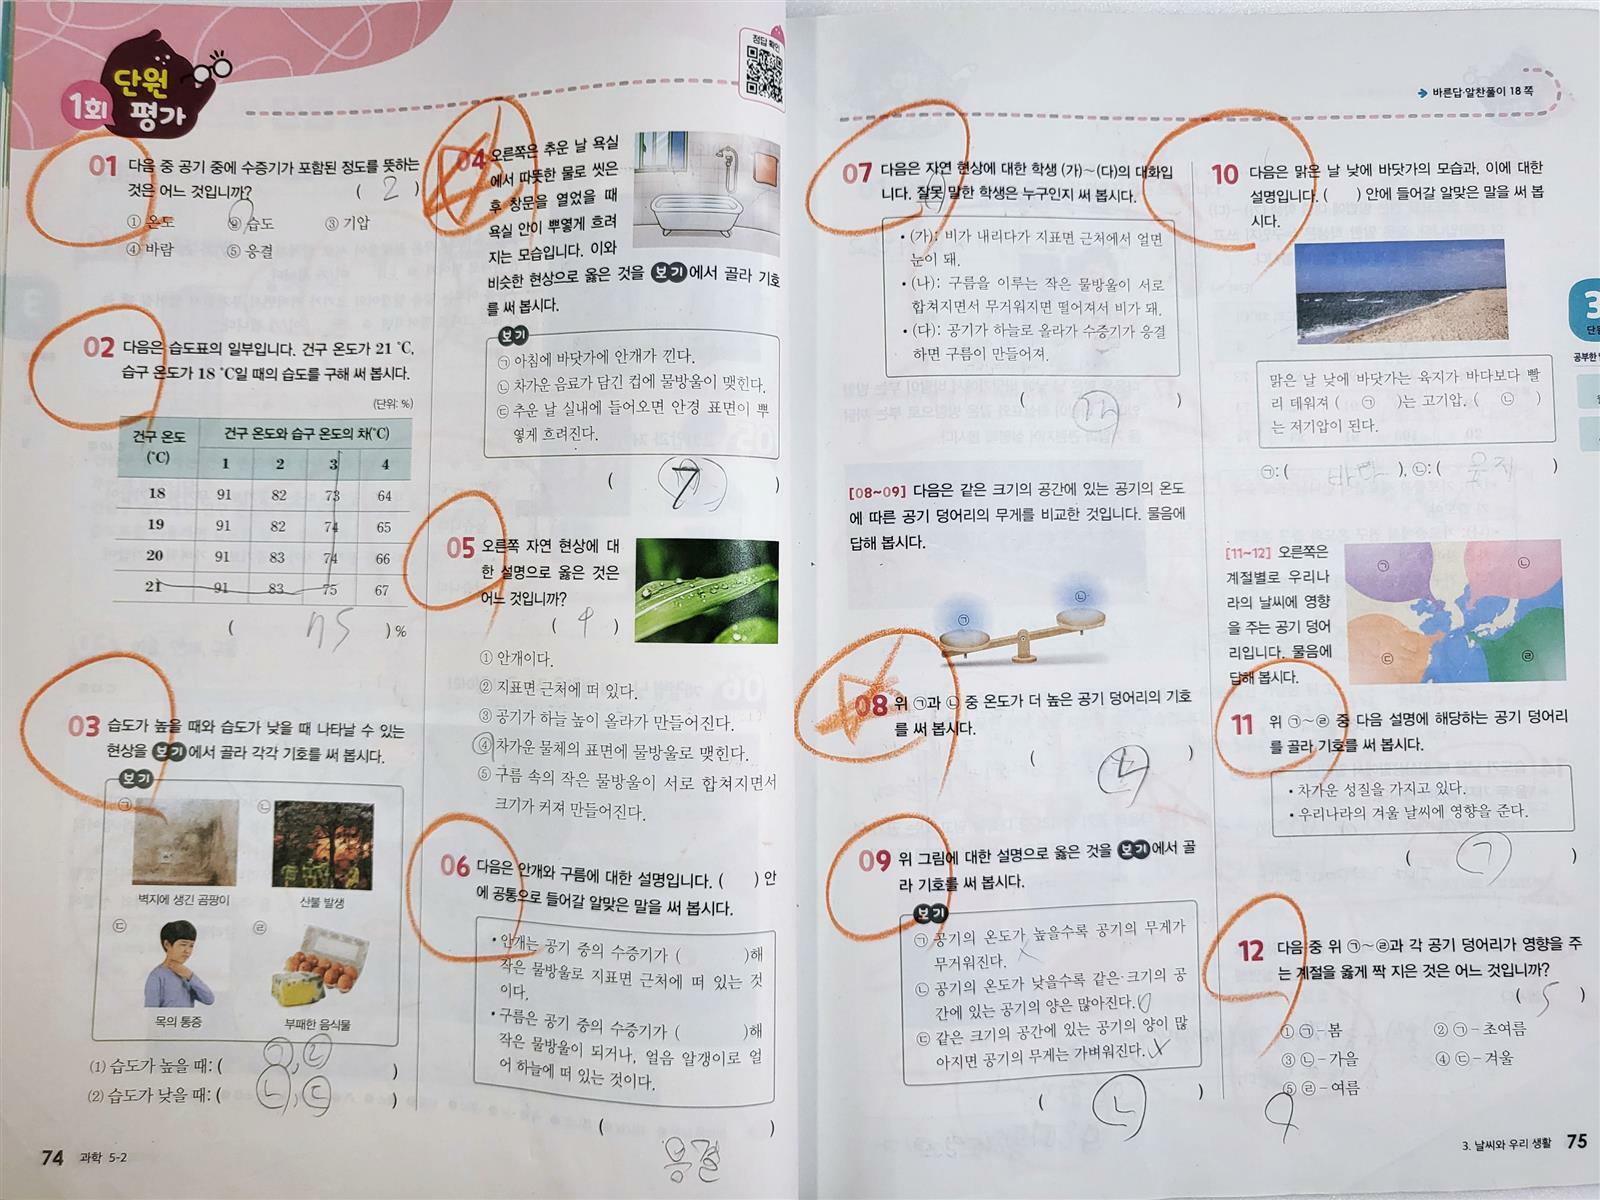 1회 단원 평가
정답 확인
01 다음 중 공기 중에 수증기가 포함된 정도를 뜻하는
것은 어느 것입니까? ( 2 )
① 온도 ② 습도 ③ 기압
④ 바람 ⑤ 응결
02 다음은 습도표의 일부입니다. 건구 온도가 21 ℃,
습구 온도가 18 ℃일 때의 습도를 구해 써 봅시다.
(단위: %)
건구 온도 (℃) 건구 온도와 습구 온도의 차(℃)
1 2 3 4
18 91 82 73 64
19 91 82 74 65
20 91 83 74 66
21 91 83 75 67
( 75 ) %
03 습도가 높을 때와 습도가 낮을 때 나타날 수 있는
현상을 보기에서 골라 각각 기호를 써 봅시다.
보기
㉠ ㉡
벽지에 생긴 곰팡이 산불 발생
㉢ ㉣
목의 통증 부패한 음식물
(1) 습도가 높을 때: ( ㉠, ㉣ )
(2) 습도가 낮을 때: ( ㉡, ㉢ )
74 과학 5-2
04 오른쪽은 추운 날 욕실
에서 따뜻한 물로 씻은
후 창문을 열었을 때
욕실 안이 뿌옇게 흐려
지는 모습입니다. 이와
비슷한 현상으로 옳은 것을 보기에서 골라 기호
를 써 봅시다.
보기
㉠ 아침에 바닷가에 안개가 낀다.
㉡ 차가운 음료가 담긴 컵에 물방울이 맺힌다.
㉢ 추운 날 실내에 들어오면 안경 표면이 뿌
옇게 흐려진다.
( )
05 오른쪽 자연 현상에 대
한 설명으로 옳은 것은
어느 것입니까?
( 4 )
① 안개이다.
② 지표면 근처에 떠 있다.
③ 공기가 하늘 높이 올라가 만들어진다.
④ 차가운 물체의 표면에 물방울로 맺힌다.
⑤ 구름 속의 작은 물방울이 서로 합쳐지면서
크기가 커져 만들어진다.
06 다음은 안개와 구름에 대한 설명입니다. ( ) 안
에 공통으로 들어갈 알맞은 말을 써 봅시다.
• 안개는 공기 중의 수증기가 ( )해
작은 물방울로 지표면 근처에 떠 있는 것
이다.
• 구름은 공기 중의 수증기가 ( )해
작은 물방울이 되거나, 얼음 알갱이로 얼
어 하늘에 떠 있는 것이다.
( )
응결
바른답·알찬풀이 18 쪽
07 다음은 자연 현상에 대한 학생 (가)~(다)의 대화입
니다. 잘못 말한 학생은 누구인지 써 봅시다.
• (가): 비가 내리다가 지표면 근처에서 얼면
눈이 돼.
• (나): 구름을 이루는 작은 물방울이 서로
합쳐지면서 무거워지면 떨어져서 비가 돼.
• (다): 공기가 하늘로 올라가 수증기가 응결
하면 구름이 만들어져.
( 가 )
[08~09] 다음은 같은 크기의 공간에 있는 공기의 온도
에 따른 공기 덩어리의 무게를 비교한 것입니다. 물음에
답해 봅시다.
㉠ ㉡
08 위 ㉠과 ㉡ 중 온도가 더 높은 공기 덩어리의 기호
를 써 봅시다.
( ㉡ )
09 위 그림에 대한 설명으로 옳은 것을 보기에서 골
라 기호를 써 봅시다.
보기
㉠ 공기의 온도가 높을수록 공기의 무게가
무거워진다. X
㉡ 공기의 온도가 낮을수록 같은 크기의 공
간에 있는 공기의 양은 많아진다. O
㉢ 같은 크기의 공간에 있는 공기의 양이 많
아지면 공기의 무게는 가벼워진다. X
( ㉡ )
10 다음은 맑은 날 낮에 바닷가의 모습과, 이에 대한
설명입니다. ( ) 안에 들어갈 알맞은 말을 써 봅
시다.
맑은 날 낮에 바닷가는 육지가 바다보다 빨
리 데워져 ( ㉠ )는 고기압, ( ㉡ )
는 저기압이 된다.
㉠: ( 바다 ), ㉡: ( 육지 )
[11~12] 오른쪽은
계절별로 우리나
라의 날씨에 영향
을 주는 공기 덩어
리입니다. 물음에
답해 봅시다.
㉠ ㉡
㉢ ㉣
11 위 ㉠~㉣ 중 다음 설명에 해당하는 공기 덩어리
를 골라 기호를 써 봅시다.
• 차가운 성질을 가지고 있다.
• 우리나라의 겨울 날씨에 영향을 준다.
( ㉠ )
12 다음 중 위 ㉠~㉣과 각 공기 덩어리가 영향을 주
는 계절을 옳게 짝 지은 것은 어느 것입니까?
( 5 )
① ㉠-봄 ② ㉠-초여름
③ ㉡-가을 ④ ㉢-겨울
⑤ ㉣-여름
3
3. 날씨와 우리 생활 75